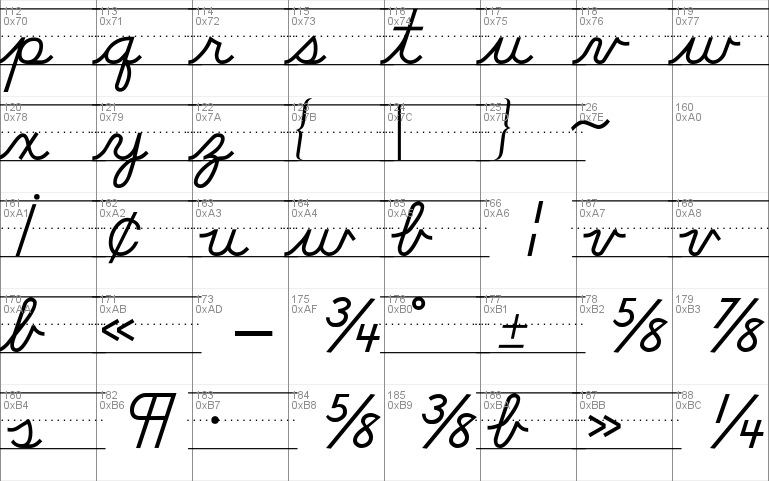 112 113 114 115 116 117 118 119
0x70 0x71 0x72 0x73 0x74 0x75 0x76 0x77
p q r s t u v w
120 121 122 123 124 125 126 160
0x78 0x79 0x7A 0x7B 0x7C 0x7D 0x7E 0xA0
x y z { | } ~
161 162 163 164 165 166 167 168
0xA1 0xA2 0xA3 0xA4 0xA5 0xA6 0xA7 0xA8
i ¢ u w b ¦ v v
170 171 173 175 176 177 178 179
0xAA 0xAB 0xAD 0xAF 0xB0 0xB1 0xB2 0xB3
b « - 3/4 ° ± 5/8 7/8
180 182 183 184 185 186 187 188
0xB4 0xB6 0xB7 0xB8 0xB9 0xBA 0xBB 0xBC
s ¶ · 5/8 3/8 b » 1/4